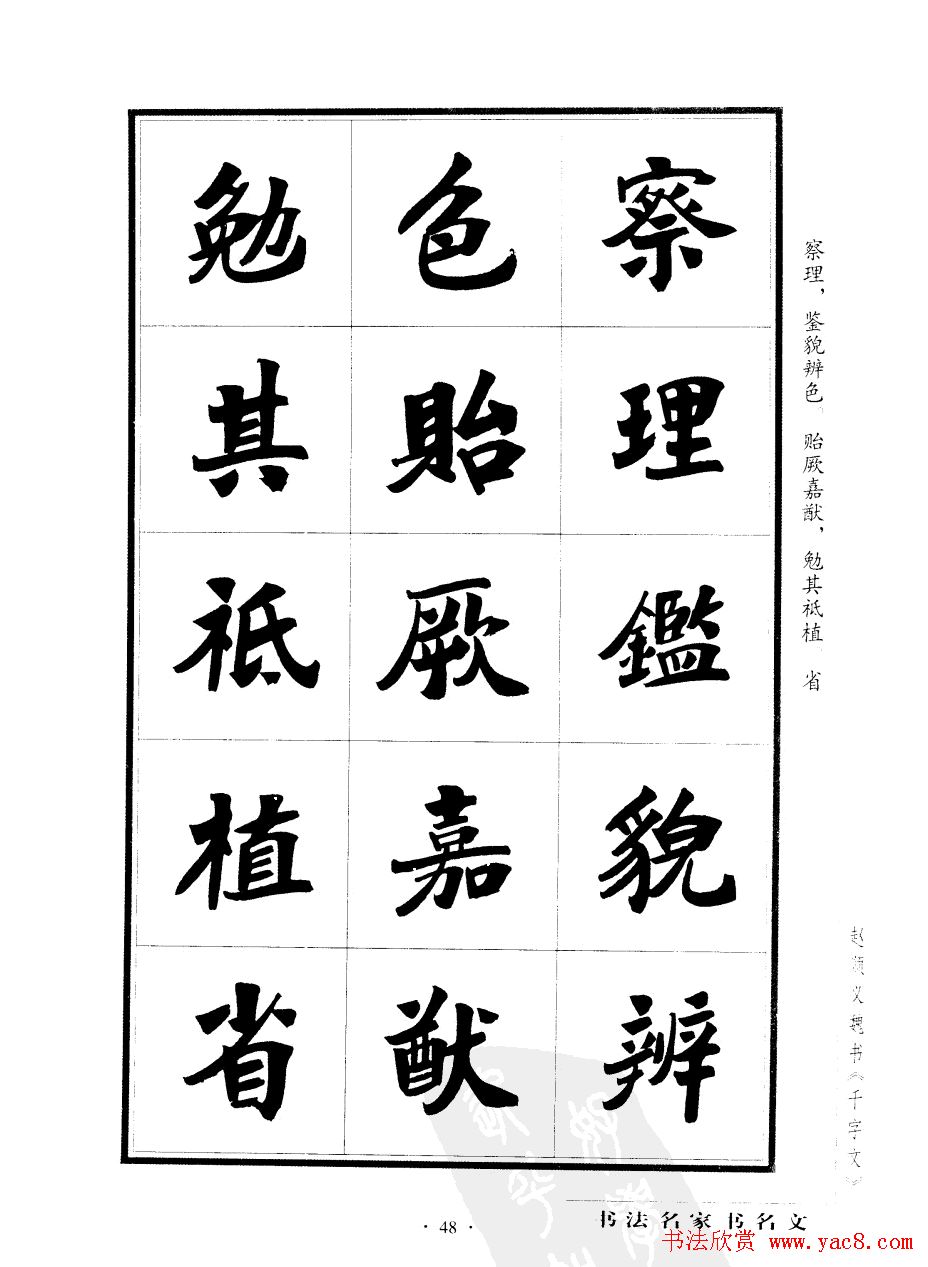 察理鑑貌辨
色貽厥嘉猷
勉其祗植省
察理，鉴貌辨色。贻厥嘉猷，勉其祗植。省
赵顺义魏书《千字文》
书法名家书名文
· 48 ·
书法欣赏 www.yac8.com